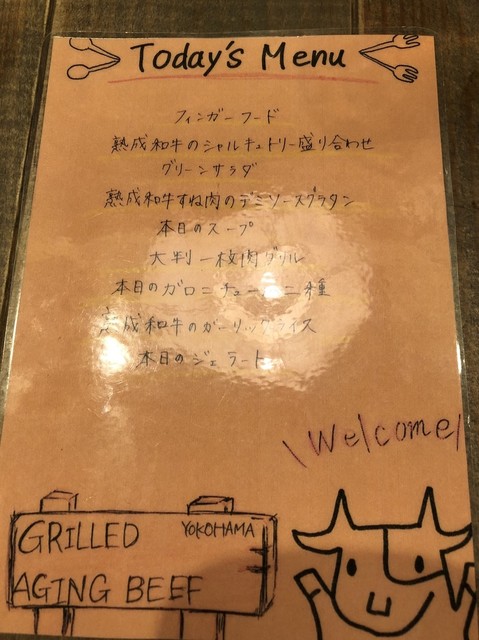 Today's Menu
フィンガーフード
熟成和牛のシャルキュトリー盛り合わせ
グリーンサラダ
熟成和牛すね肉のデミソースグラタン
本日のスープ
大判一枚肉グリル
本日のガロニチュール二種
熟成和牛のガーリックライス
本日のジェラート
\Welcome/
GRILLED YOKOHAMA
AGING BEEF